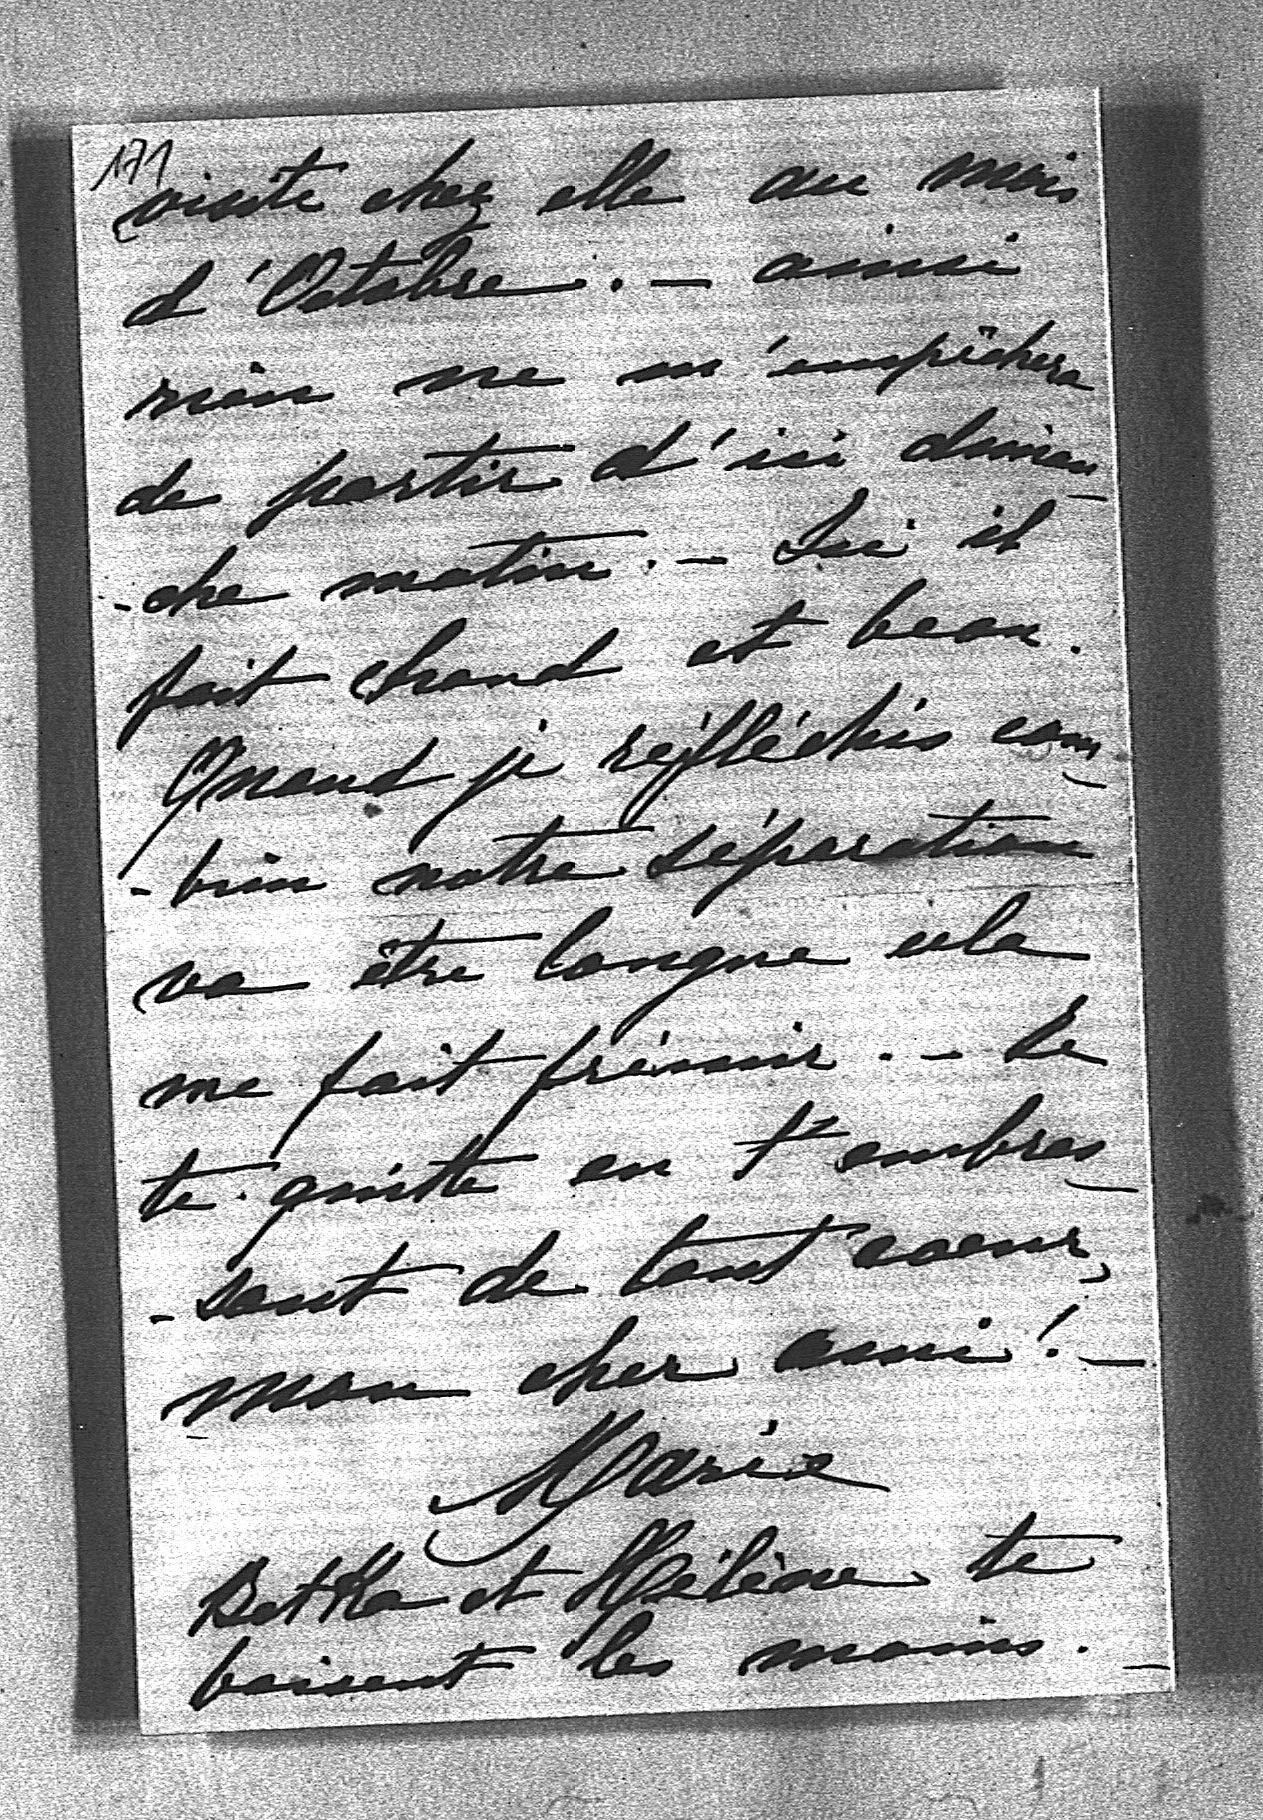 171
visite chez elle au mois
d'Octobre. — ainsi
rien ne m'empêchera
de partir d'ici diman-
-che matin. — Ici il
fait chaud et beau.
Quand je réfléchis com-
-bien notre séparation
va être longue cela
me fait frémir. — Je
te quitte en t'embras-
-sant de tout coeur,
mon cher ami! —
Marie
Betka et Hélène te
baisent les mains. —